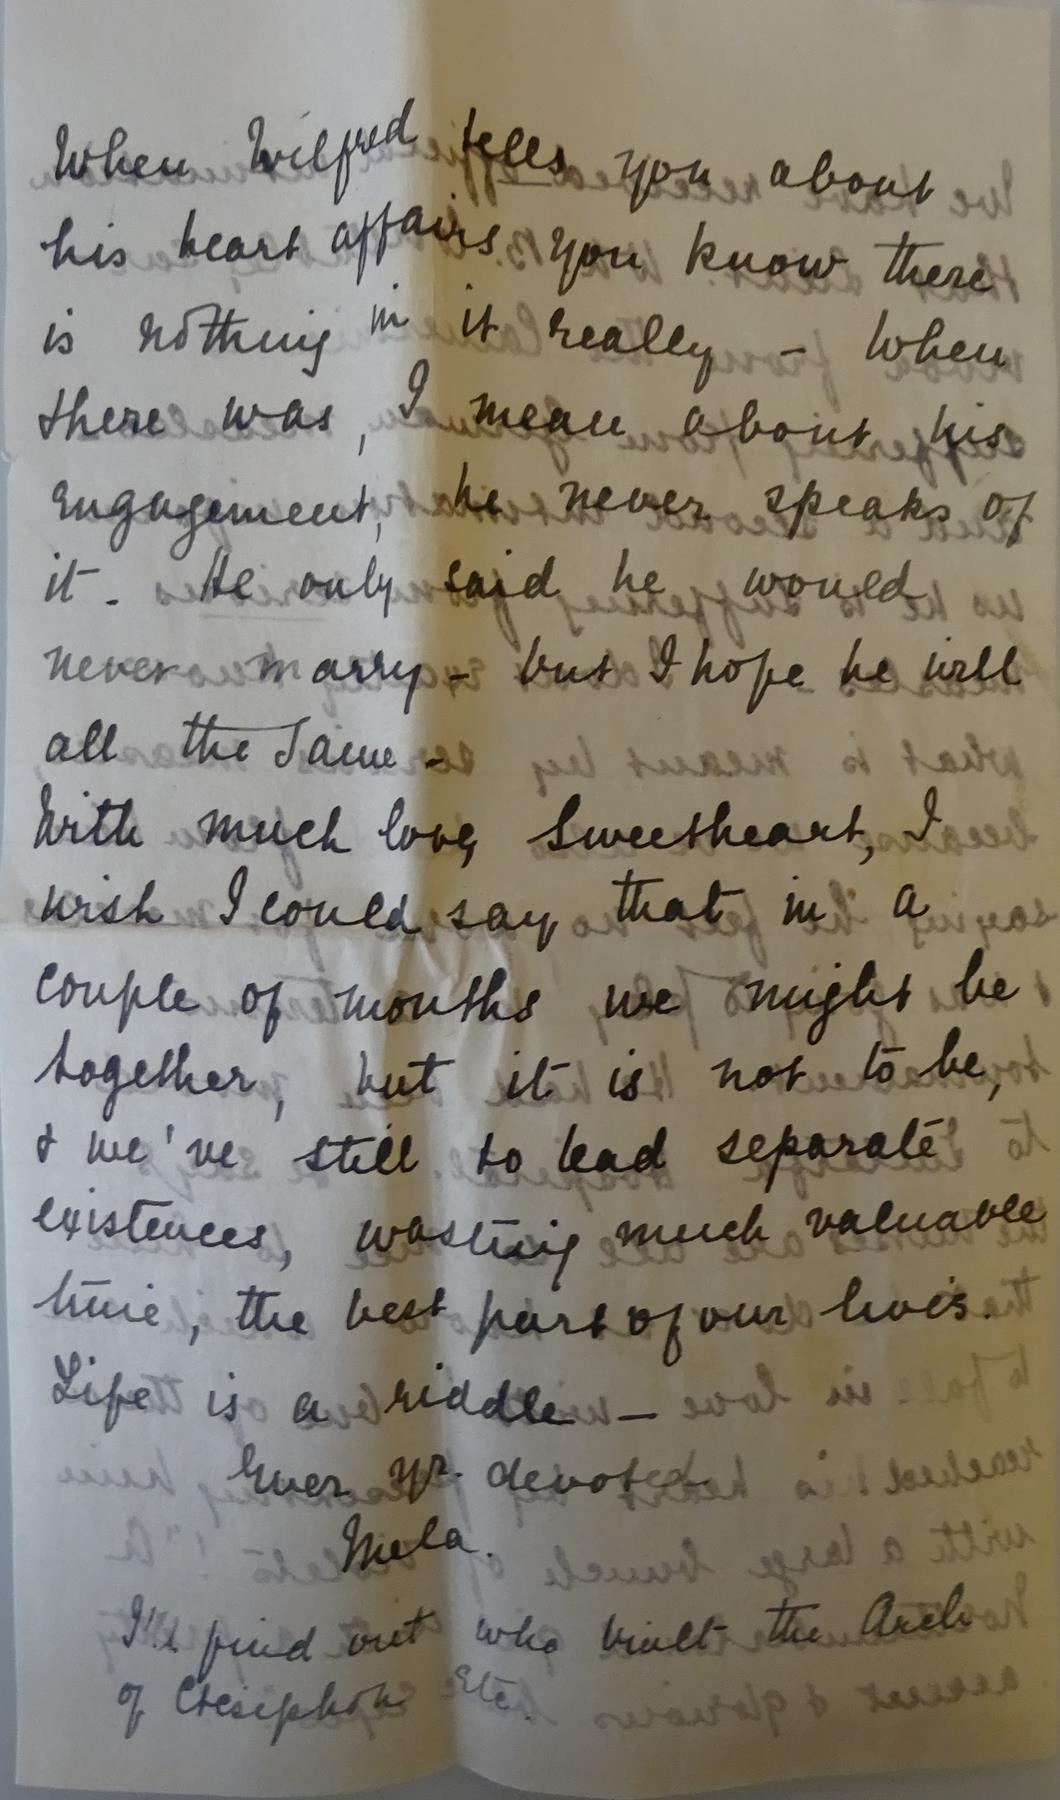 When Wilfred tells you about
his heart affairs you know there
is nothing in it really - When
there was, I mean about his
engagement, he never speaks of
it - He only said he would
never marry - but I hope he will
all the same -
With much love, Sweetheart, I
wish I could say that in a
couple of months we might be
together, but it is not to be,
& we've still to lead separate
existences, wasting much valuable
time, the best part of our lives.
Life is a riddle -
Ever yr. devoted
Mela.
I'll find out who built the Arch
of Ctesiphon Etc.